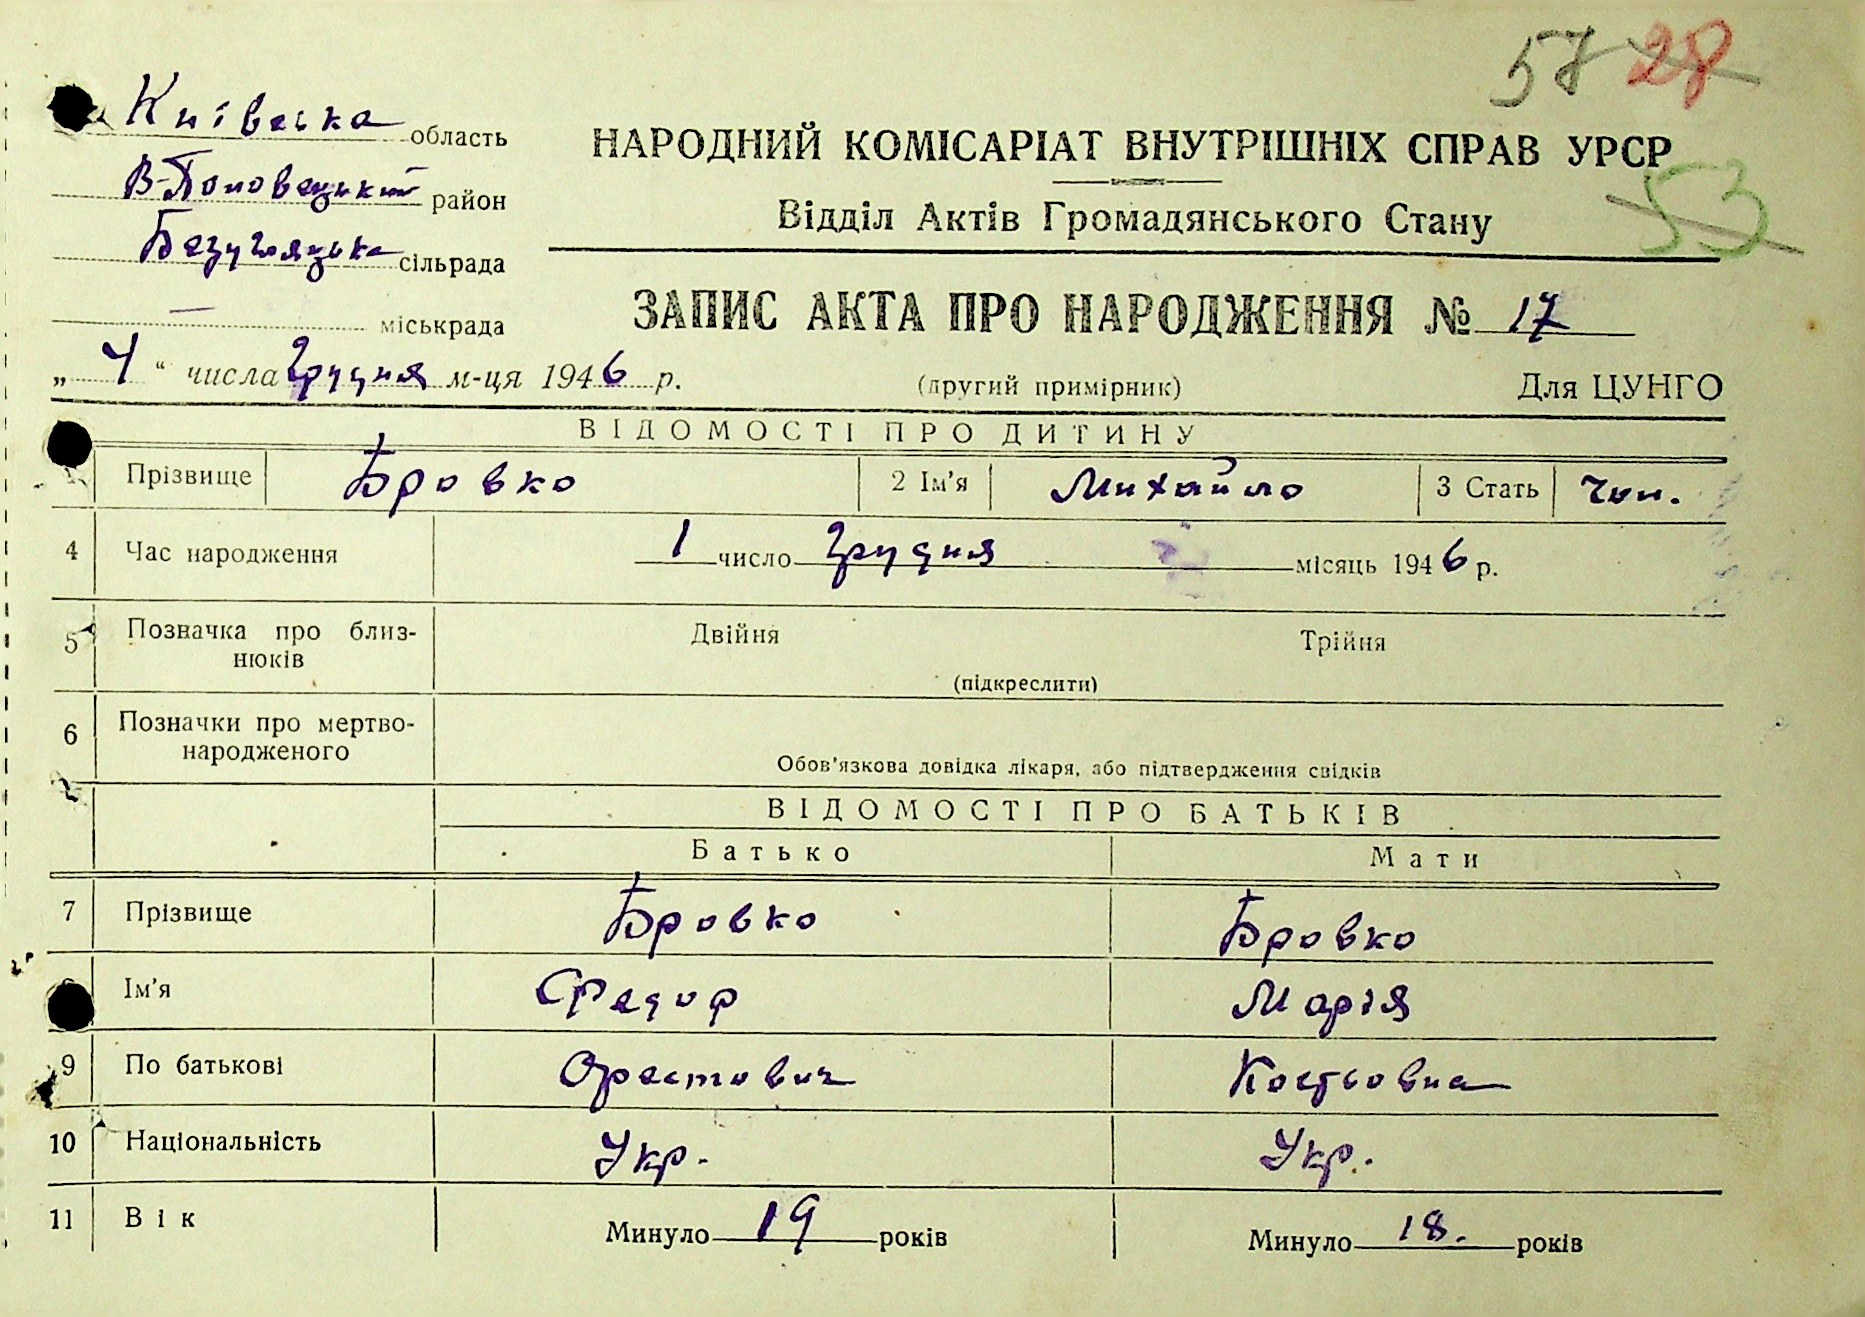 57 28
Київська область
В-Половецький район
сільрада
міськрада
НАРОДНИЙ КОМІСАРІАТ ВНУТРІШНІХ СПРАВ УРСР
53
Відділ Актів Громадянського Стану
ЗАПИС АКТА ПРО НАРОДЖЕННЯ № 17
„ 4 “ числа Грудня м-ця 1946 р.
(другий примірник)
Для ЦУНГО
ВІДОМОСТІ ПРО ДИТИНУ
1 Прізвище Бровко 2 Ім'я Михайло 3 Стать чол.
4 Час народження 1 число Грудня місяць 1946 р.
5 Позначка про близ-
нюків Двійня Трійня
(підкреслити)
6 Позначки про мертво-
народженого
Обов'язкова довідка лікаря, або підтвердження свідків
ВІДОМОСТІ ПРО БАТЬКІВ
Батько Мати
7 Прізвище Бровко Бровко
8 Ім'я Федор Марія
9 По батькові Орестович
10 Національність Укр. Укр.
11 Вік Минуло 19 років Минуло 18. років